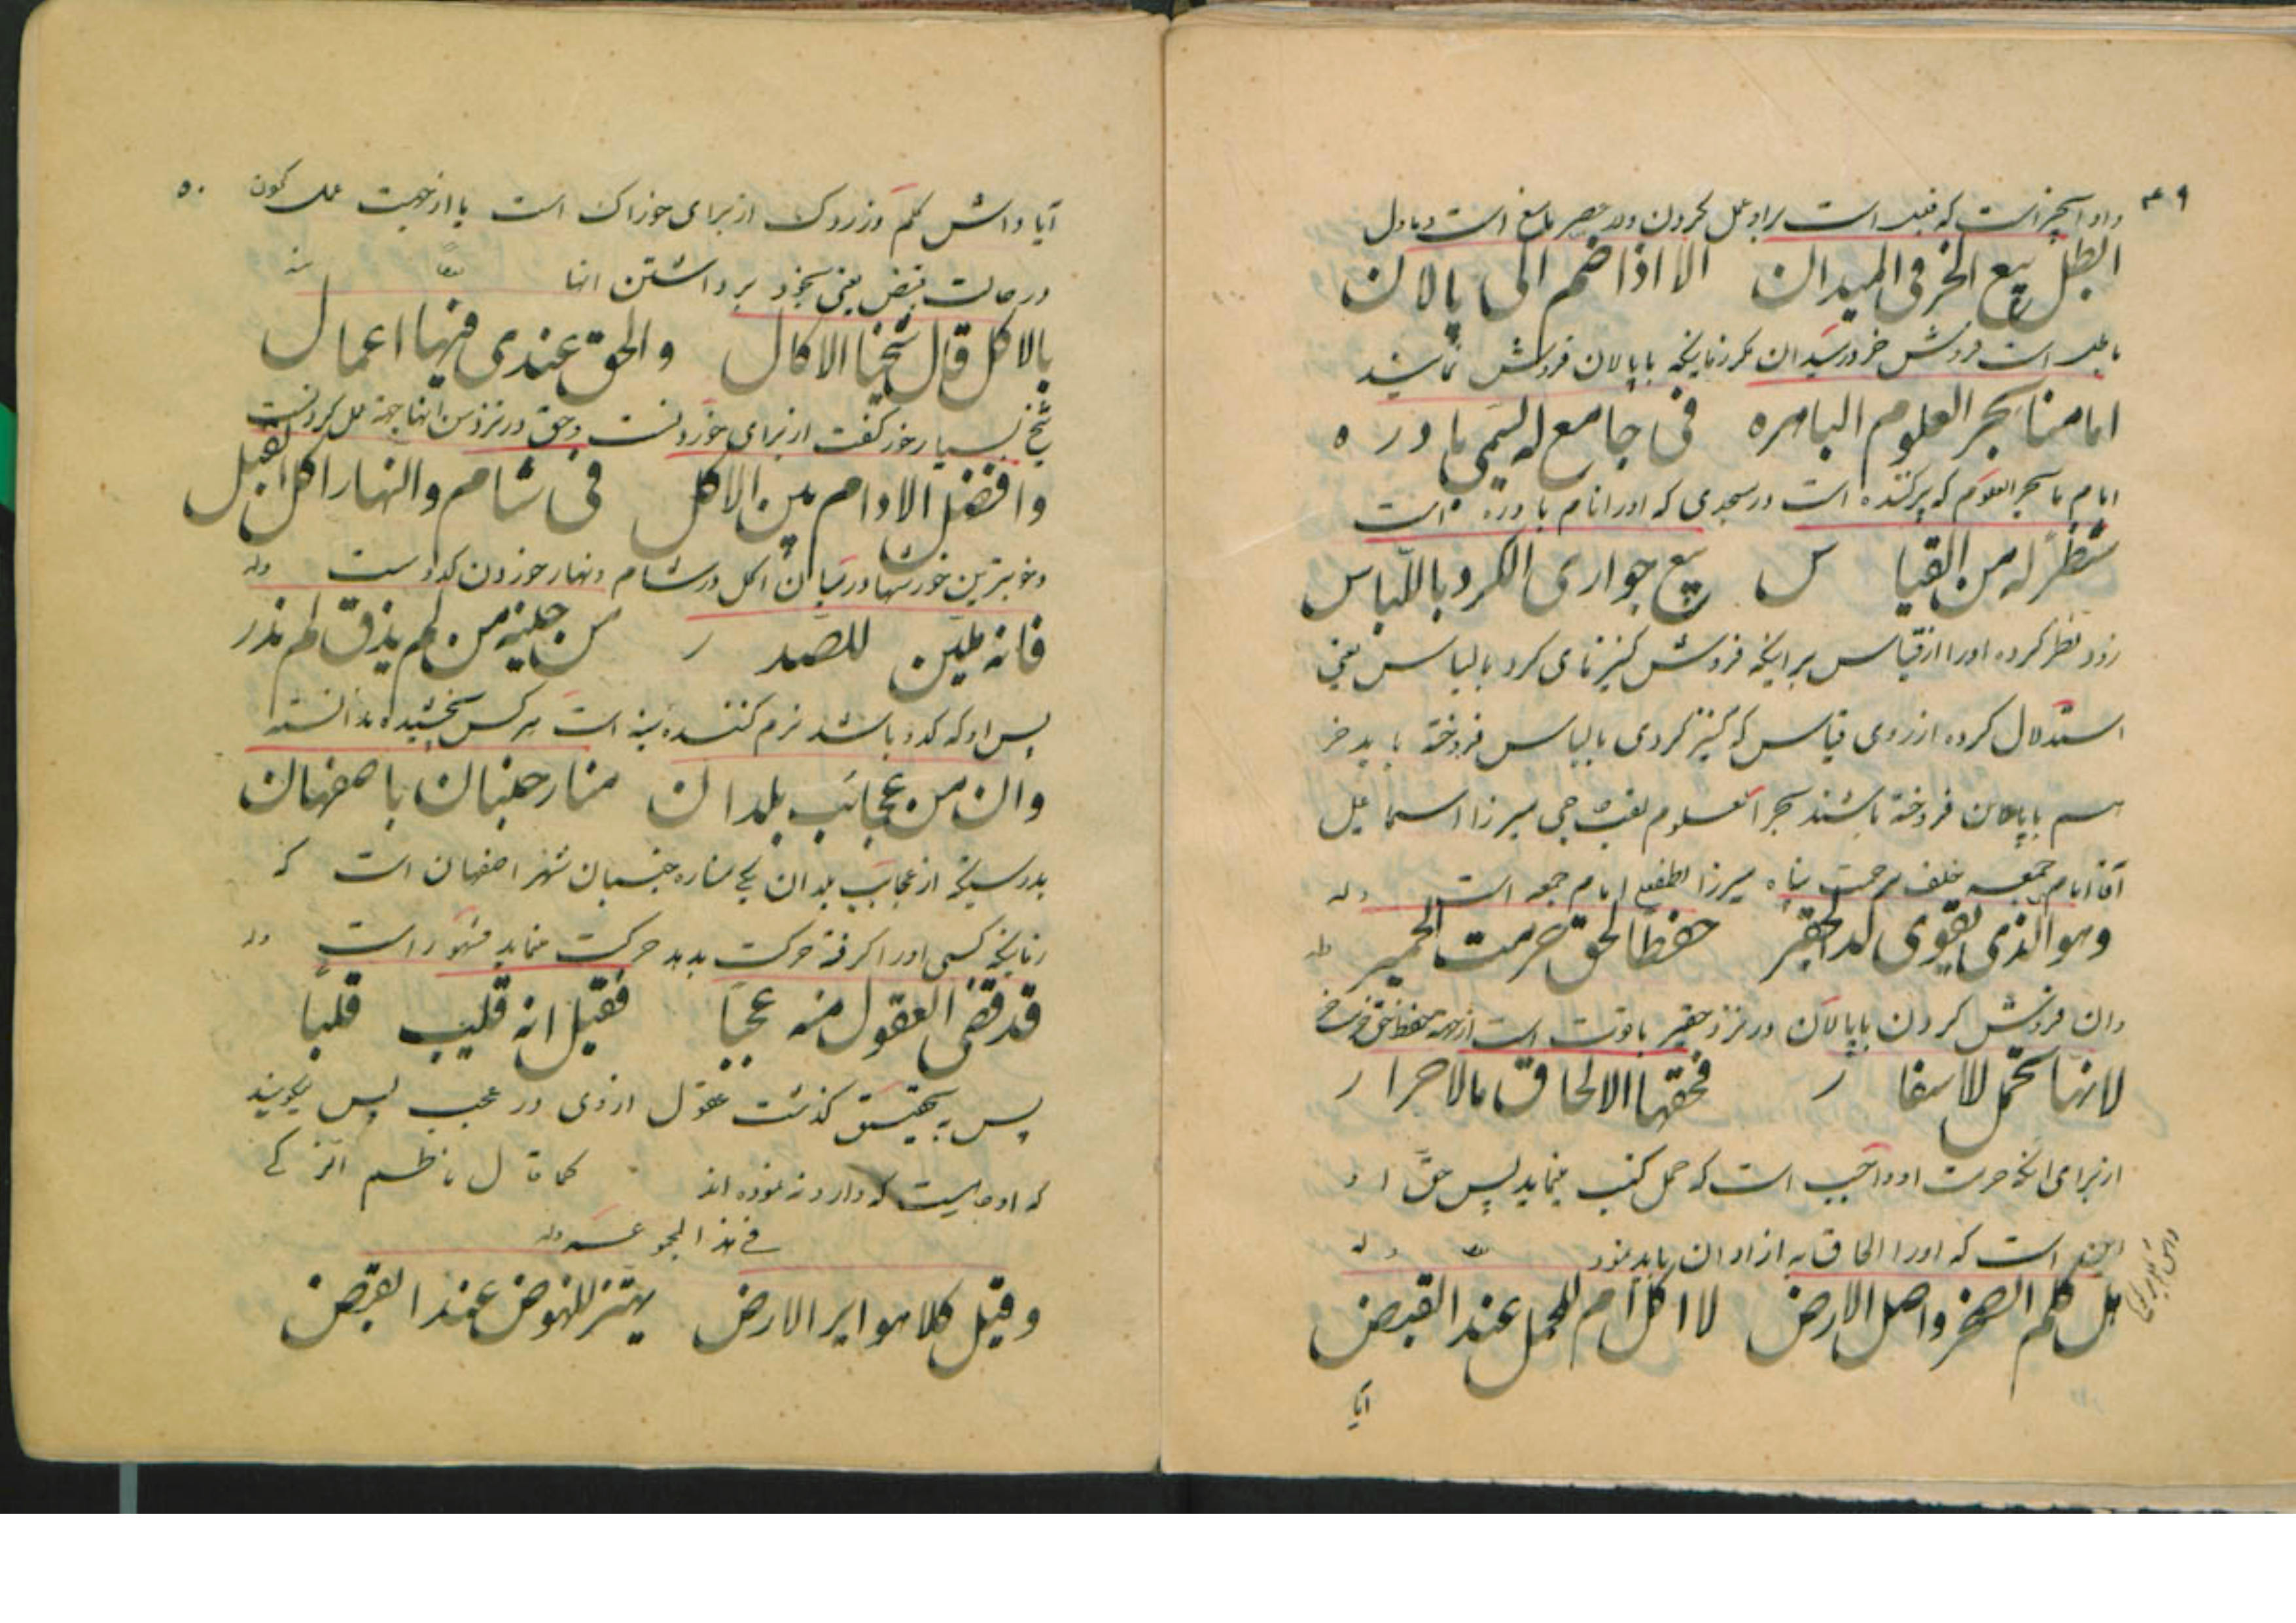 ۴۹
ابطل بیع الخر فی المیدان الا اذا ضم الی پالان
باطل است فروش خر در میدان مگر زمانیکه با پالان فروش نمایند
امامنا بحر العلوم الباهره فی جامع له یسمی بادره
امام ما بحر العلوم که است در مسجدی که اورا نام بادره است
تنظر له من القیاس بیع جواری الکرد باللباس
زود نظر کرده اورا از قیاس بر اینکه فروش کنیزهای کرد با لباس یعنی
استدلال کرده از روی قیاس که کنیز کردی با لباس فروخته باید خر
هم با پالان فروخته باشند بحر العلوم میرزا اسماعیل
آقا امام جمعه خلف مرحمت پناه میرزا امام جمعه است وله
وهو الذی یقوی لدی الحقیر حفظا لحق حرمت الحمیر
وان فروش کردن با پالان در نزد حقیر با قوت است از جهة حفظ حق حرمت خر
لانها تحمل للاسفار فحقها الالحاق بالاحرار
از برای انکه حرمت او واجب است که حمل کتب مینماید پس حق او
است که اورا الحاق به ازادان باید نمود وله
هل کلم الصخر واصل الارض لا اکل ام للحمل عند القبض
آیا
۵۰
آیا داش کلم وزردک از برای خوراک است یا از جهت عمل کون
در حالت قبض یعنی بخود بر داشتن انها
بالاکل قال شیخنا الاکال والحق عندی فیها اعمال
شیخ بسیار خور گفت از برای خوردنست وحق در نزد من انها جهة عمل کردنست
وافضل الادام بین الاکل فی شام والنهار اکل القبل
وخوبترین خورشها در میان اکل در شام ونهار خوردن کدوست وله
فانه ملین للصدر من جلیه من لم یذق لم یدر
پس او که کدو باشد نرم کننده سینه است هر کس نچشیده ندانسته
وان من عجائب بلدان منار جنبان باصفهان
بدرستیکه از عجایب بلدان یکی مناره جنبان شهر اصفهان است که
زمانیکه کسی اورا گرفته حرکت بدهد حرکت مینماید مشهور است وله
قد قضی العقول منه عجبا فقیل انه قلیب قلبا
پس بتحقیق گذشت عقول از وی در عجب پس میگویند
که او چاهیست که وارونه نموده اند کما قال ناظم
فی هذا المجموعه وله
وقیل کلا هو ایر الارض یهتز للنهوض عند القبض